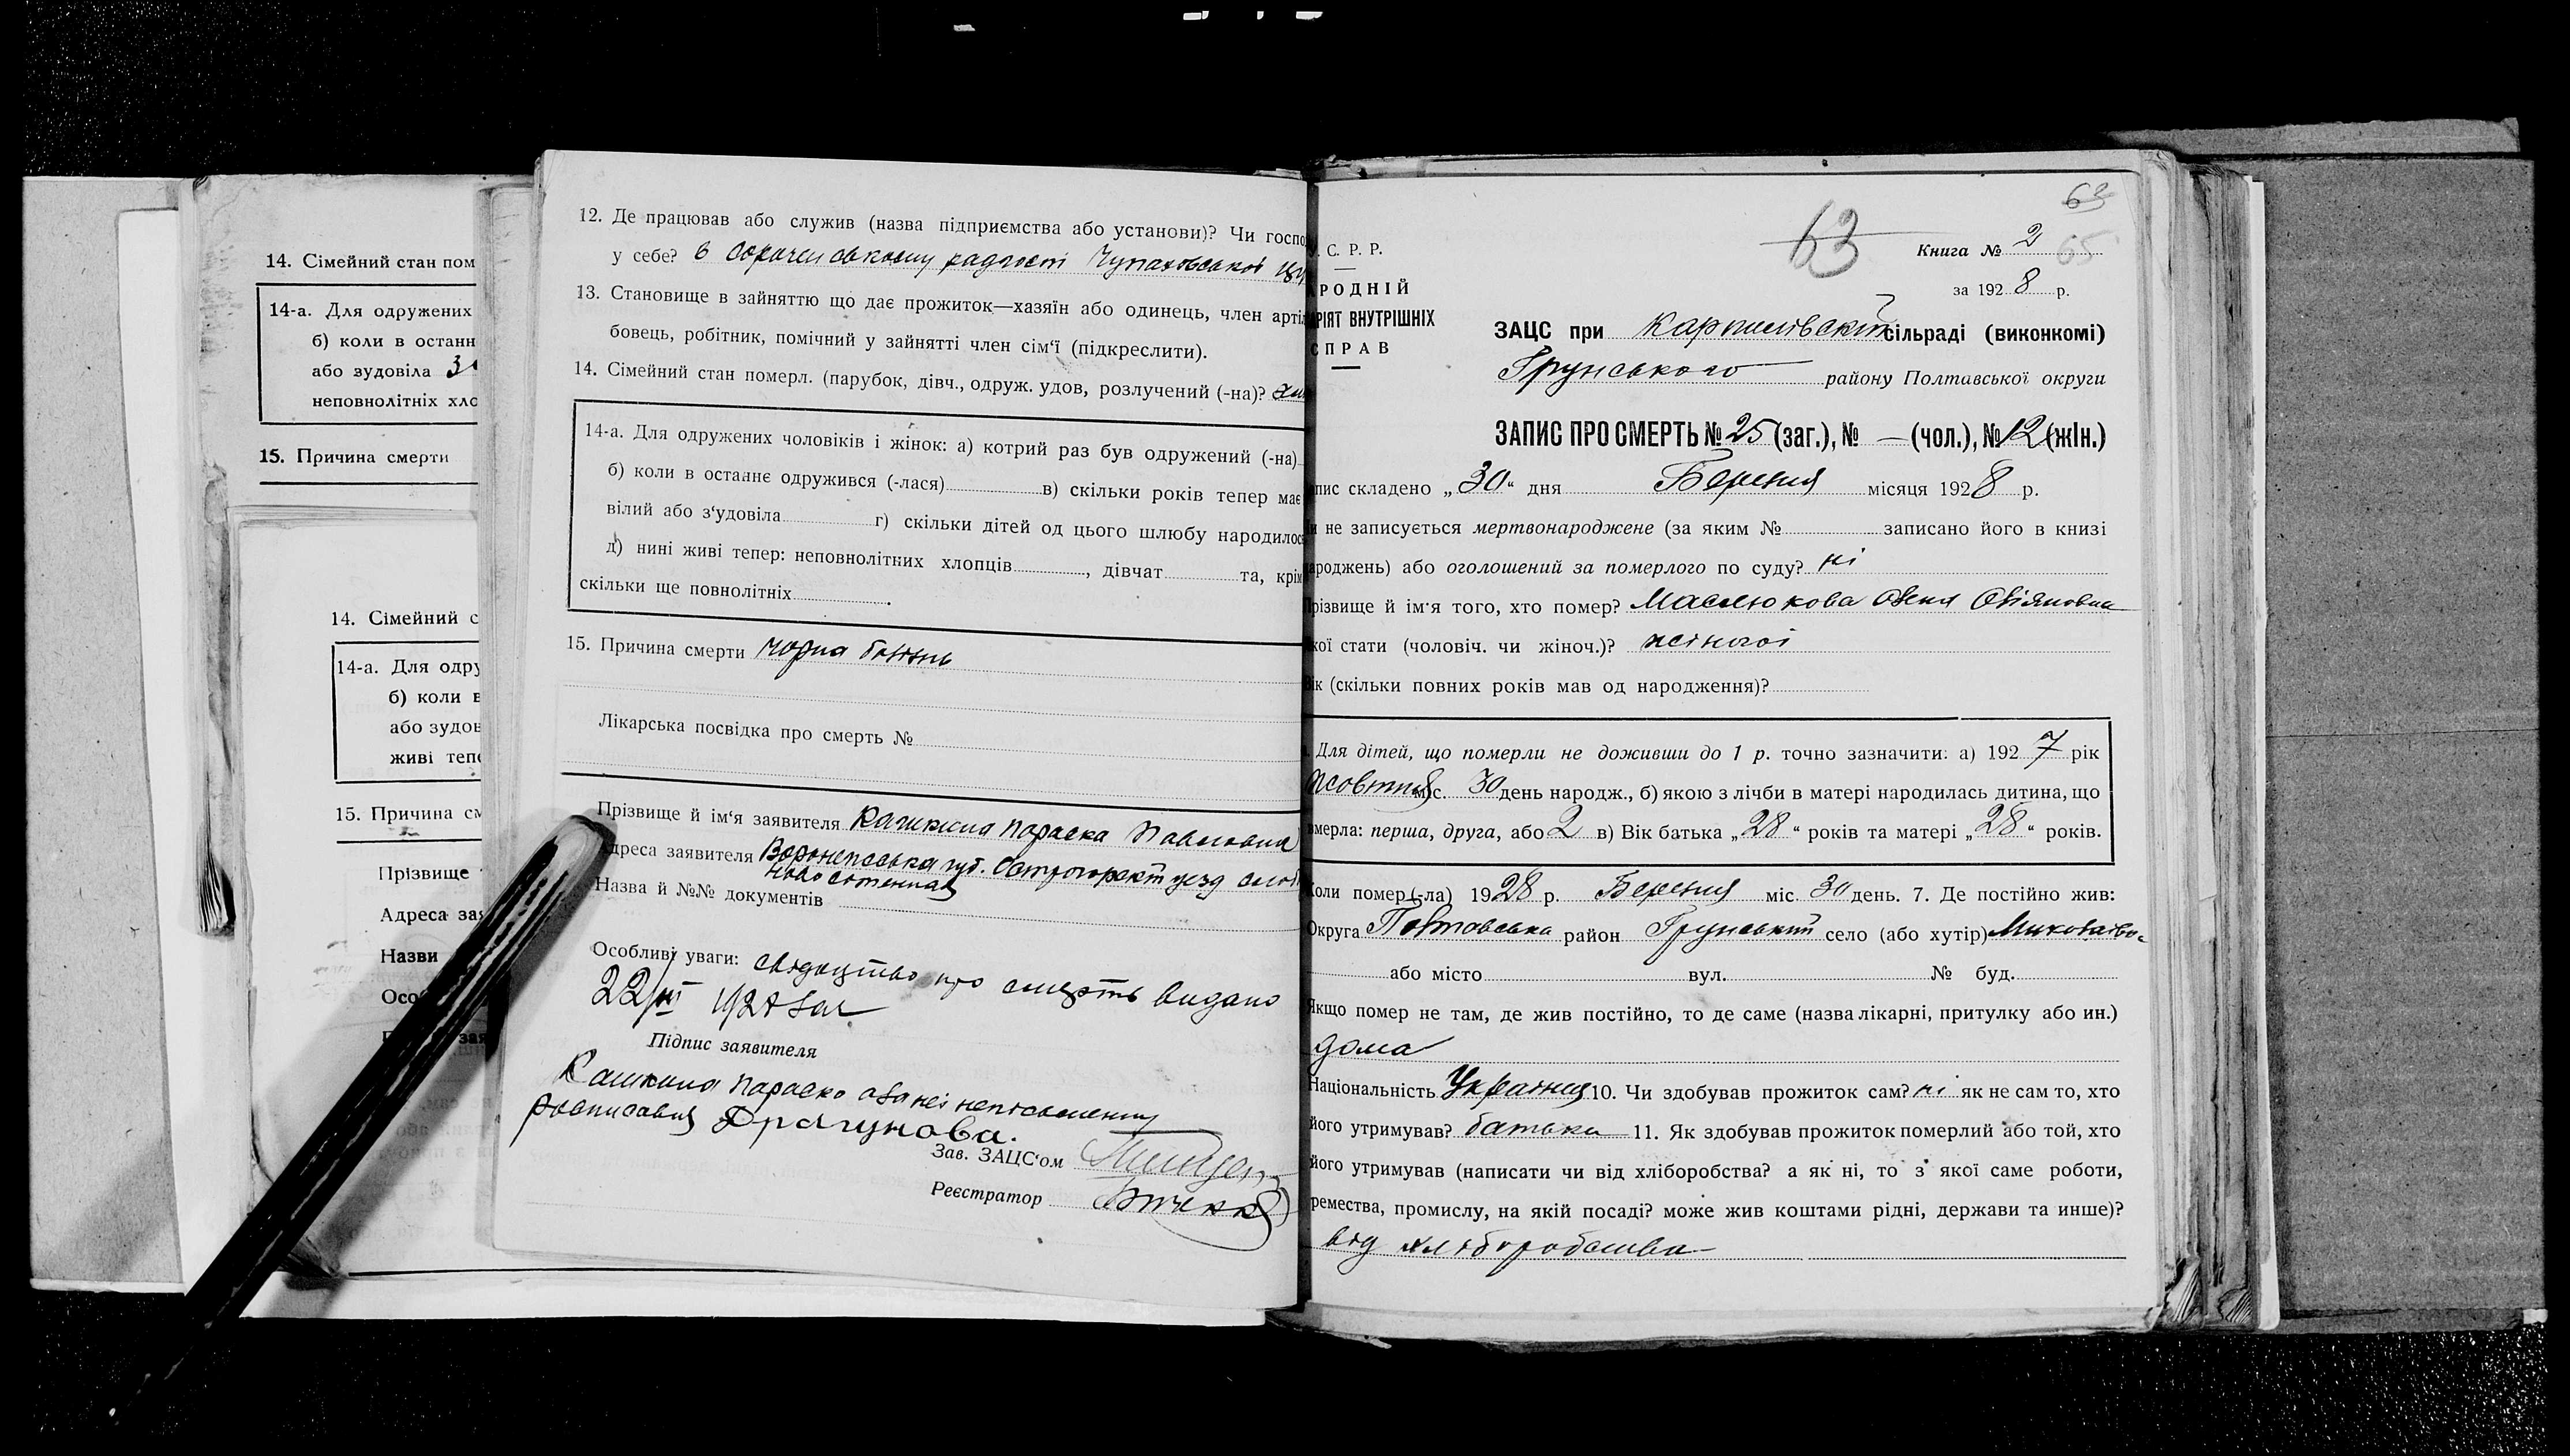 14. Сімейний стан пом
14-а. Для одружених
б) коли в останн
або зудовіла
неповнолітніх хло
15. Причина смерти
14. Сімейний с
14-а. Для одру
б) коли в
або зудов
живі тепе
15. Причина см
Прізвище
Адреса зая
Назви
Осо
12. Де працював або служив (назва підприємства або установи)? Чи госпо
у себе? в радгоспі Чупаховської
13. Становище в зайняттю що дає прожиток—хазяїн або одинець, член артіл
бовець, робітник, помічний у зайнятті член сім'ї (підкреслити).
14. Сімейний стан померл. (парубок, дівч., одруж. удов, розлучений (-на)?
14-а. Для одружених чоловіків і жінок: а) котрий раз був одружений (-на)
б) коли в останнє одружився (-лася) в) скільки років тепер має
вілий або з'удовіла г) скільки дітей од цього шлюбу народилос
д) нині живі тепер: неповнолітних хлопців, дівчат та, крім
скільки ще повнолітніх.
15. Причина смерти чорна болезнь
Лікарська посвідка про смерть №
Прізвище й ім'я заявителя Кашкина Параска Павловна
Адреса заявителя Воронежська губ. уезд
Назва й №№ документів
Особливі уваги: свідоцтво про смерть видано
22/III 192
Підпис заявителя
Кашкина Параско а за неї неписьменну
росписався Драгунова.
Зав. ЗАЦС'ом
Реєстратор
63
63
65
Книга № 2
С. Р. Р.
РОДНІЙ
АРІЯТ ВНУТРІШНІХ
СПРАВ
за 1928 р.
ЗАЦС при Карпилівській сільраді (виконкомі)
Грунського району Полтавської округи
ЗАПИС ПРО СМЕРТЬ № 25 (заг.), № — (чол.), № 12 (жін.)
пис складено „30“ дня Березня місяця 1928 р.
и не записується мертвонароджене (за яким № записано його в книзі
ароджень) або оголошений за померлого по суду? ні
Прізвище й ім'я того, хто помер? Маслюкова
кої стати (чоловіч. чи жіноч.)? жіночої
Вік (скільки повних років мав од народження)?
Для дітей, що померли не доживши до 1 р. точно зазначити: а) 1927 рік
жовтня міс. 30 день народж., б) якою з лічби в матері народилась дитина, що
вмерла: перша, друга, або 2 в) Вік батька „28“ років та матері „28“ років.
Коли помер (-ла) 1928 р. Березня міс. 30 день. 7. Де постійно жив:
Округа Полтавська район Грунський село (або хутір)
або місто вул. № буд.
Якщо помер не там, де жив постійно, то де саме (назва лікарні, притулку або ин.)
дома
Національність Українця 10. Чи здобував прожиток сам? ні як не сам то, хто
його утримував? батьки 11. Як здобував прожиток померлий або той, хто
його утримував (написати чи від хліборобства? а як ні, то з якої саме роботи,
ремества, промислу, на якій посаді? може жив коштами рідні, держави та инше)?
від хліборобства